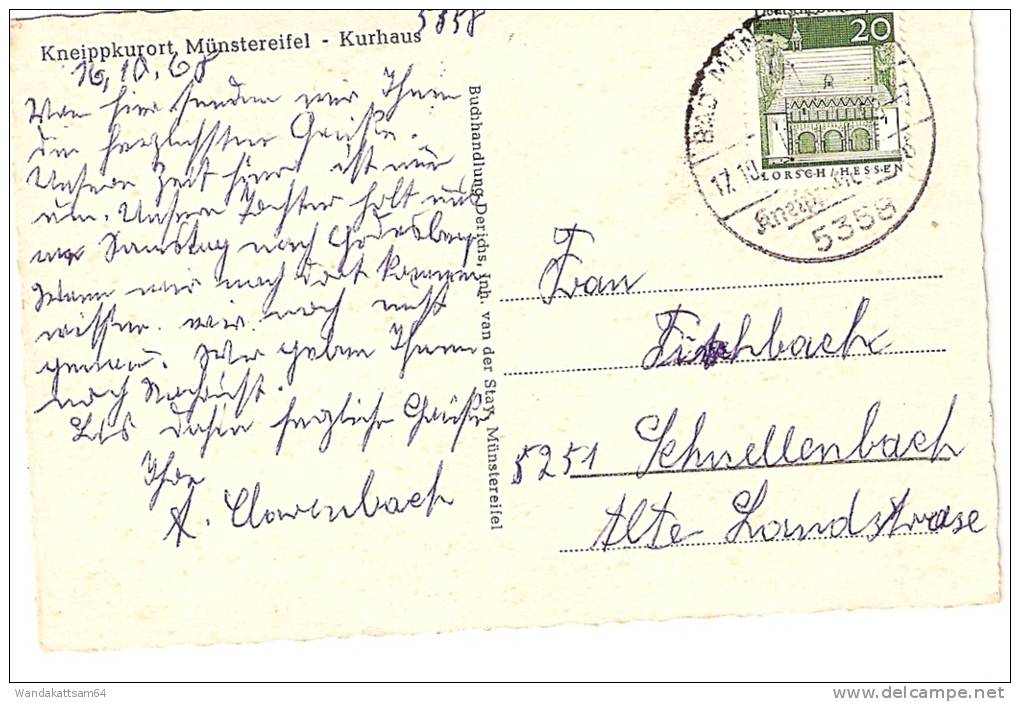 5358
Kneippkurort Münstereifel - Kurhaus
16.10.68
Von hier senden wir Ihnen
die herzlichsten Grüße.
Unsere Zeit hier ist nun
um. Unsere Tochter holt uns
Samstag nach Godesberg
Wann wir nach dort kommen
wissen wir noch nicht
genau. Wir geben Ihnen
noch Nachricht.
Bis dahin herzliche Grüße
Ihre
A. Clarenbach
Buchhandlung Derichs, Inh. van der Stay, Münstereifel
20
LORSCH/HESSEN
BAD MÜN
17.10
5358
Frau
Fischbach
5251 Schnellenbach
Alte Landstrase
Wandakattsam64
www.delcampe.net